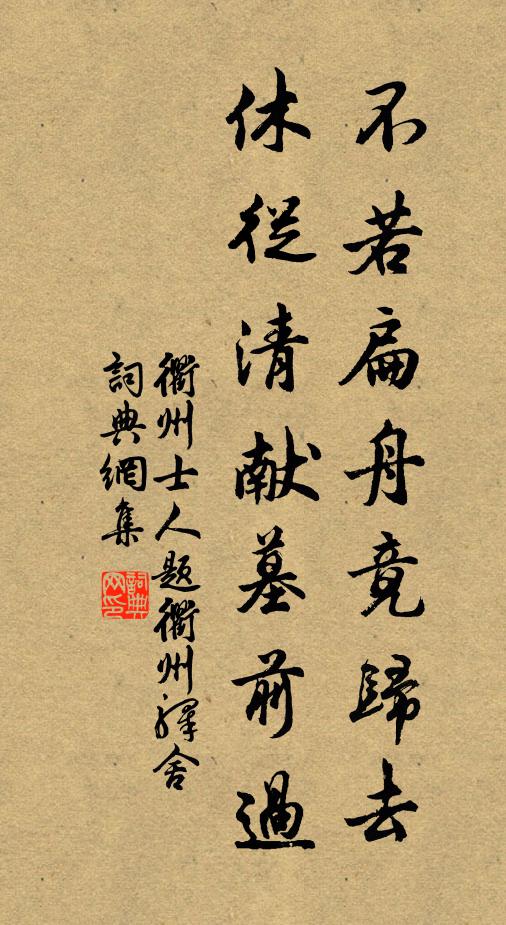 不若扁舟竟歸去
休從清献墓前過
衢州士人题衢州驛舍
詞典網集
詞典网印